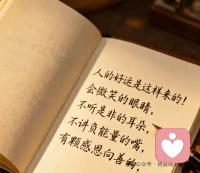 人的好运是这样来的!
会微笑的眼睛,
不听是非的耳朵,
不讲负能量的嘴,
有颗感恩向善的,
公众号